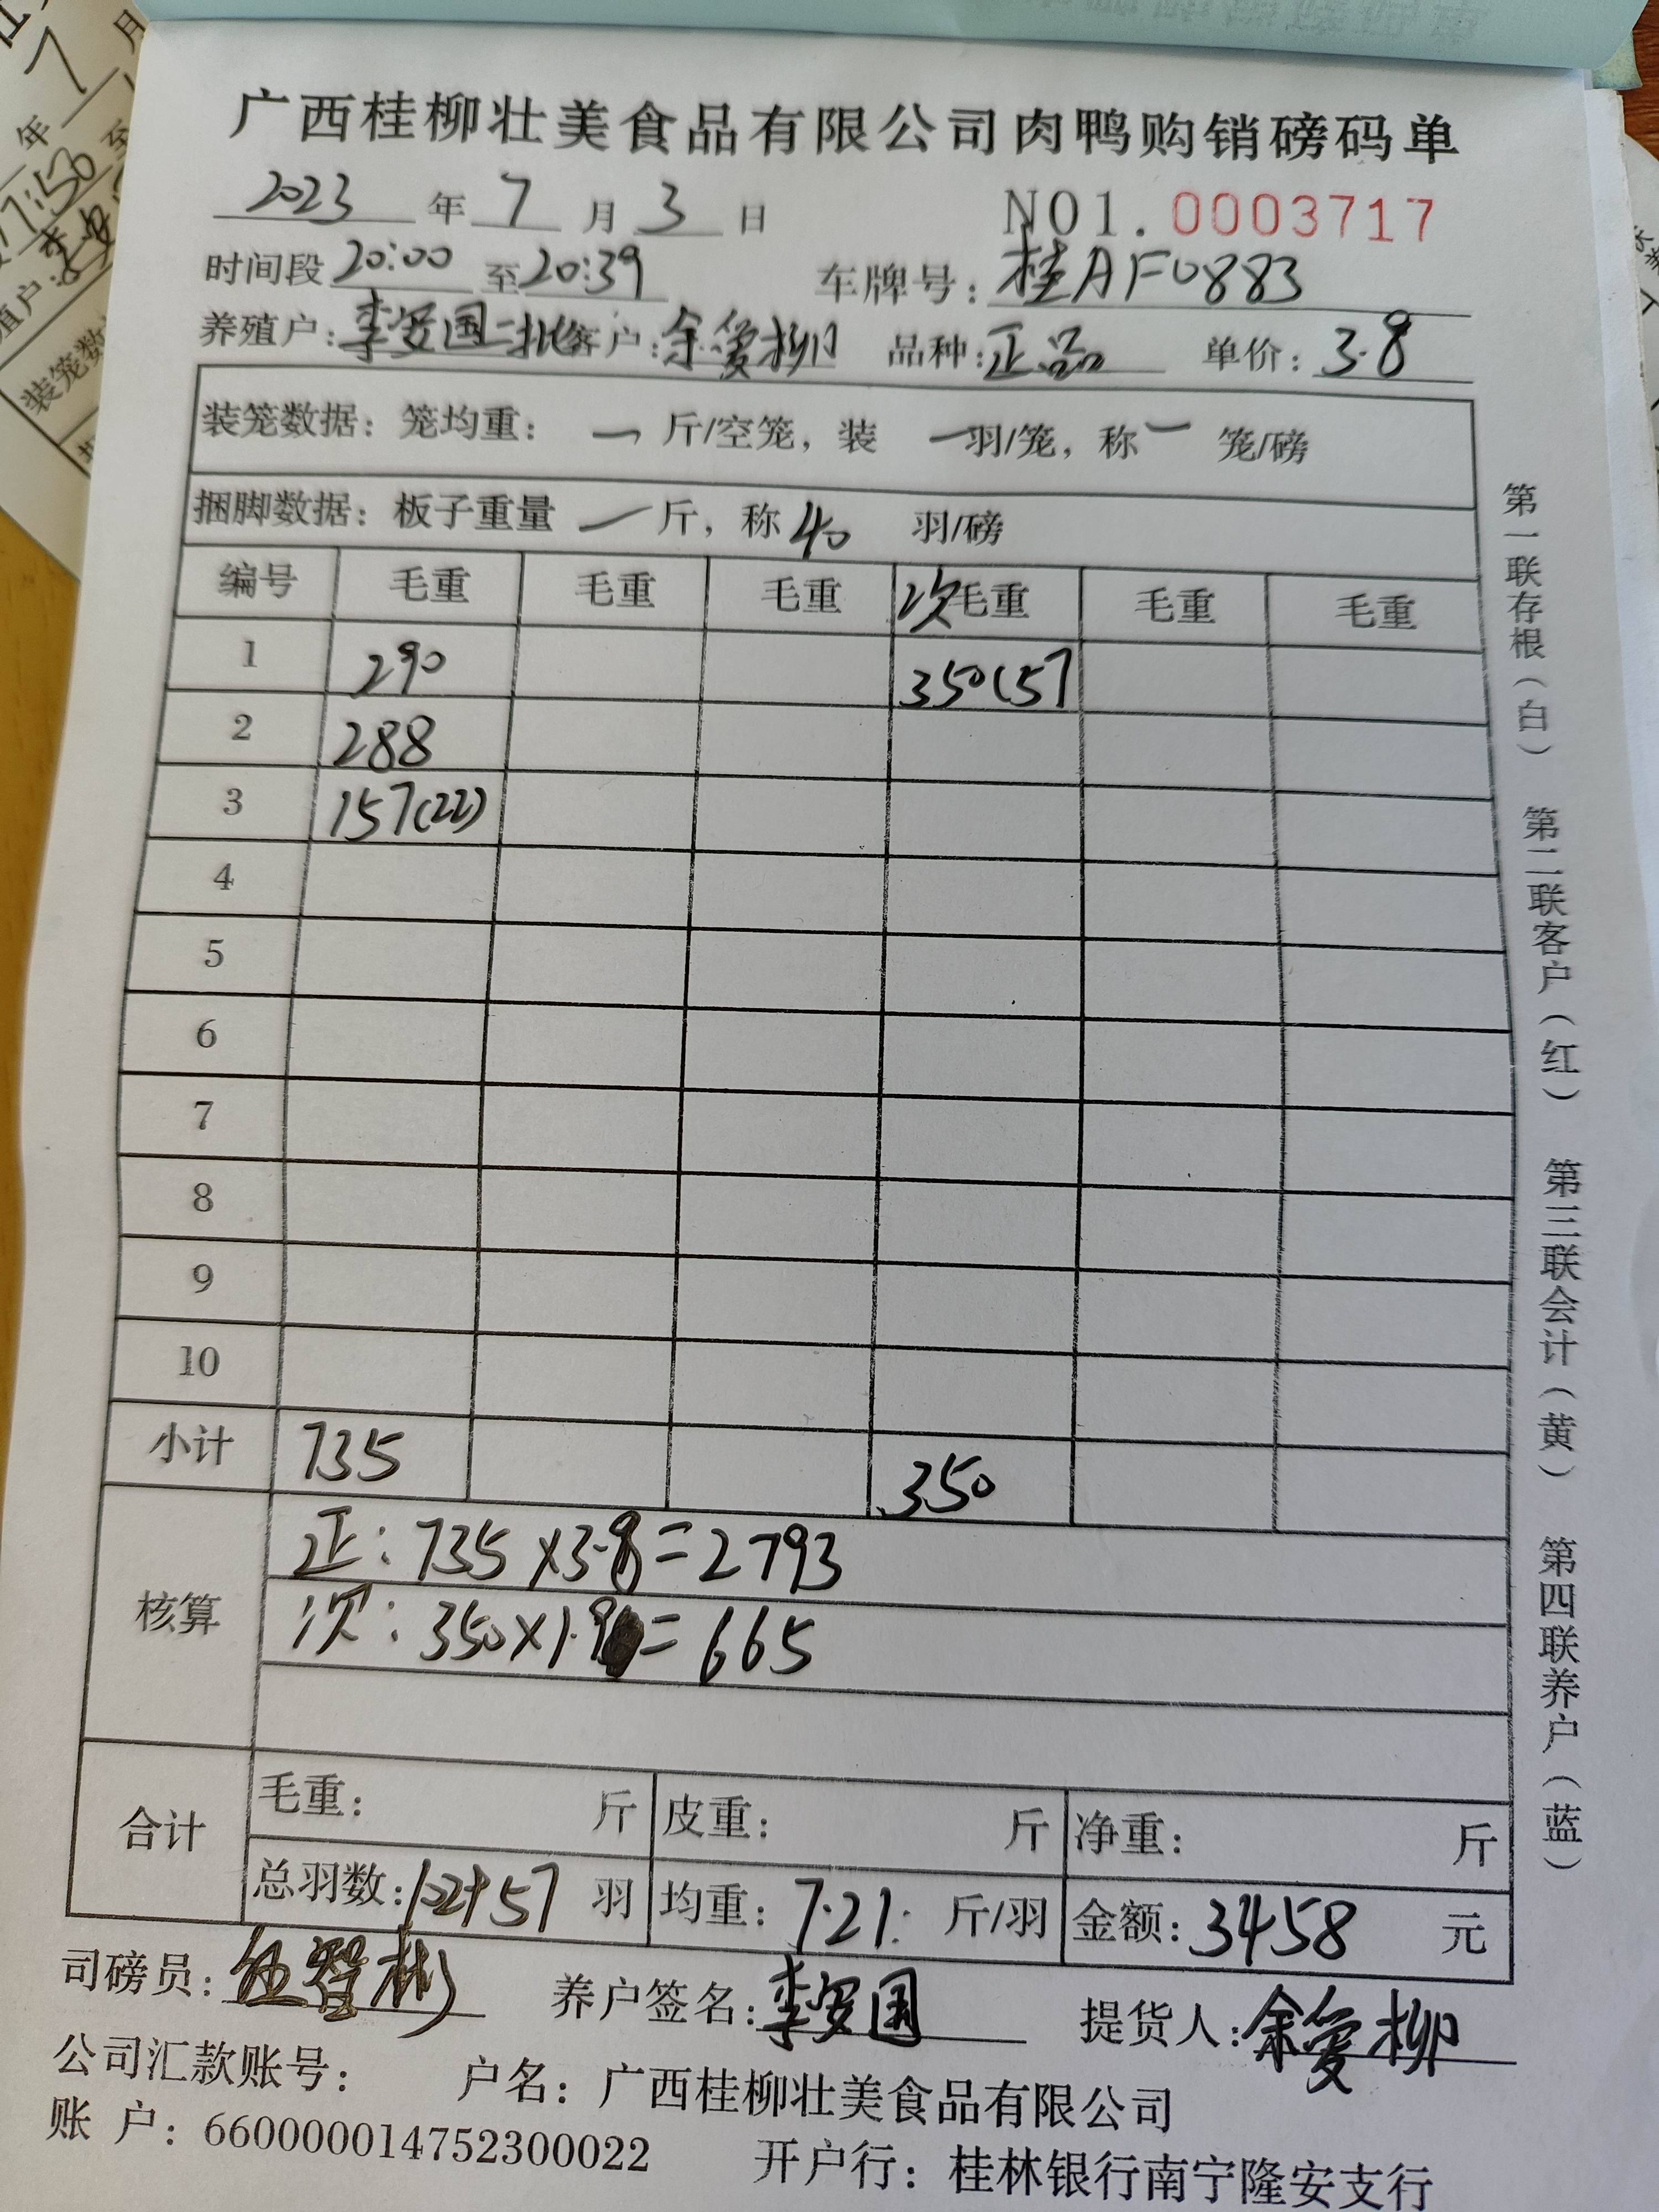 广西桂柳壮美食品有限公司肉鸭购销磅码单
2023 年 7 月 3 日 NO1.0003717
时间段 20:00 至 20:39 车牌号: 桂AF0883
养殖户: 李安国二批 客户: 余爱柳 品种: 正品 单价: 3.8
装笼数据: 笼均重: 一 斤/空笼, 装 一 羽/笼, 称 一 笼/磅
捆脚数据: 板子重量 一 斤, 称 40 羽/磅
编号 毛重 毛重 毛重 次毛重 毛重 毛重
1 290 350(57
2 288
3 157(22)
4
5
6
7
8
9
10
小计 735 350
核算
正: 735×3.8=2793
次: 350×1.9=665
合计
毛重: 斤 皮重: 斤 净重: 斤
总羽数: 102+57 羽 均重: 7.21 斤/羽 金额: 3458 元
司磅员: 养户签名: 李安国 提货人: 余爱柳
公司汇款账号: 户名: 广西桂柳壮美食品有限公司
账 户: 660000014752300022 开户行: 桂林银行南宁隆安支行
第一联存根(白) 第二联客户(红) 第三联会计(黄) 第四联养户(蓝)
年 7 月
17:50 至
殖户:
装笼数